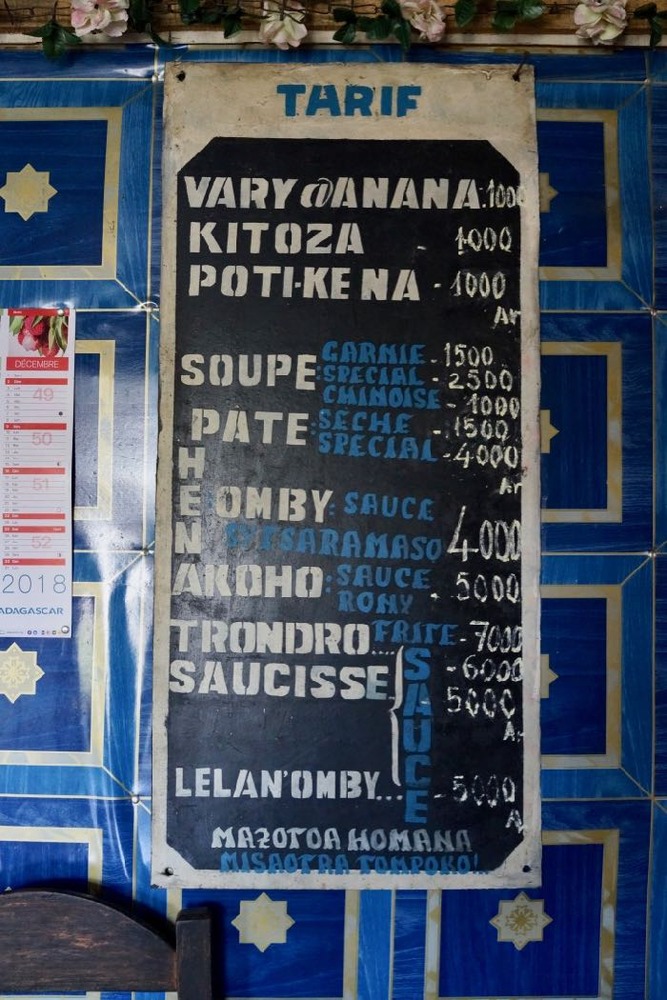 TARIF
VARY @ANANA: 1000
KITOZA - 1000
POTI-KENA - 1000
Ar
SOUPE: GARNIE - 1500
SPECIAL - 2500
CHINOISE - 1000
PATE: SECHE - 1500
SPECIAL - 4000
Ar
HENA
OMBY: SAUCE
TSARAMASO 4000
AKOHO: SAUCE - 5000
RONY
TRONDRO.... FRITE - 7000
SAUCE - 6000
SAUCISSE 5000
Ar
LELAN'OMBY... - 5000
A
MAZOTOA HOMANA
MISAOTRA TOMPOKO!
DÉCEMBRE
49
50
51
52
2018
ADAGASCAR